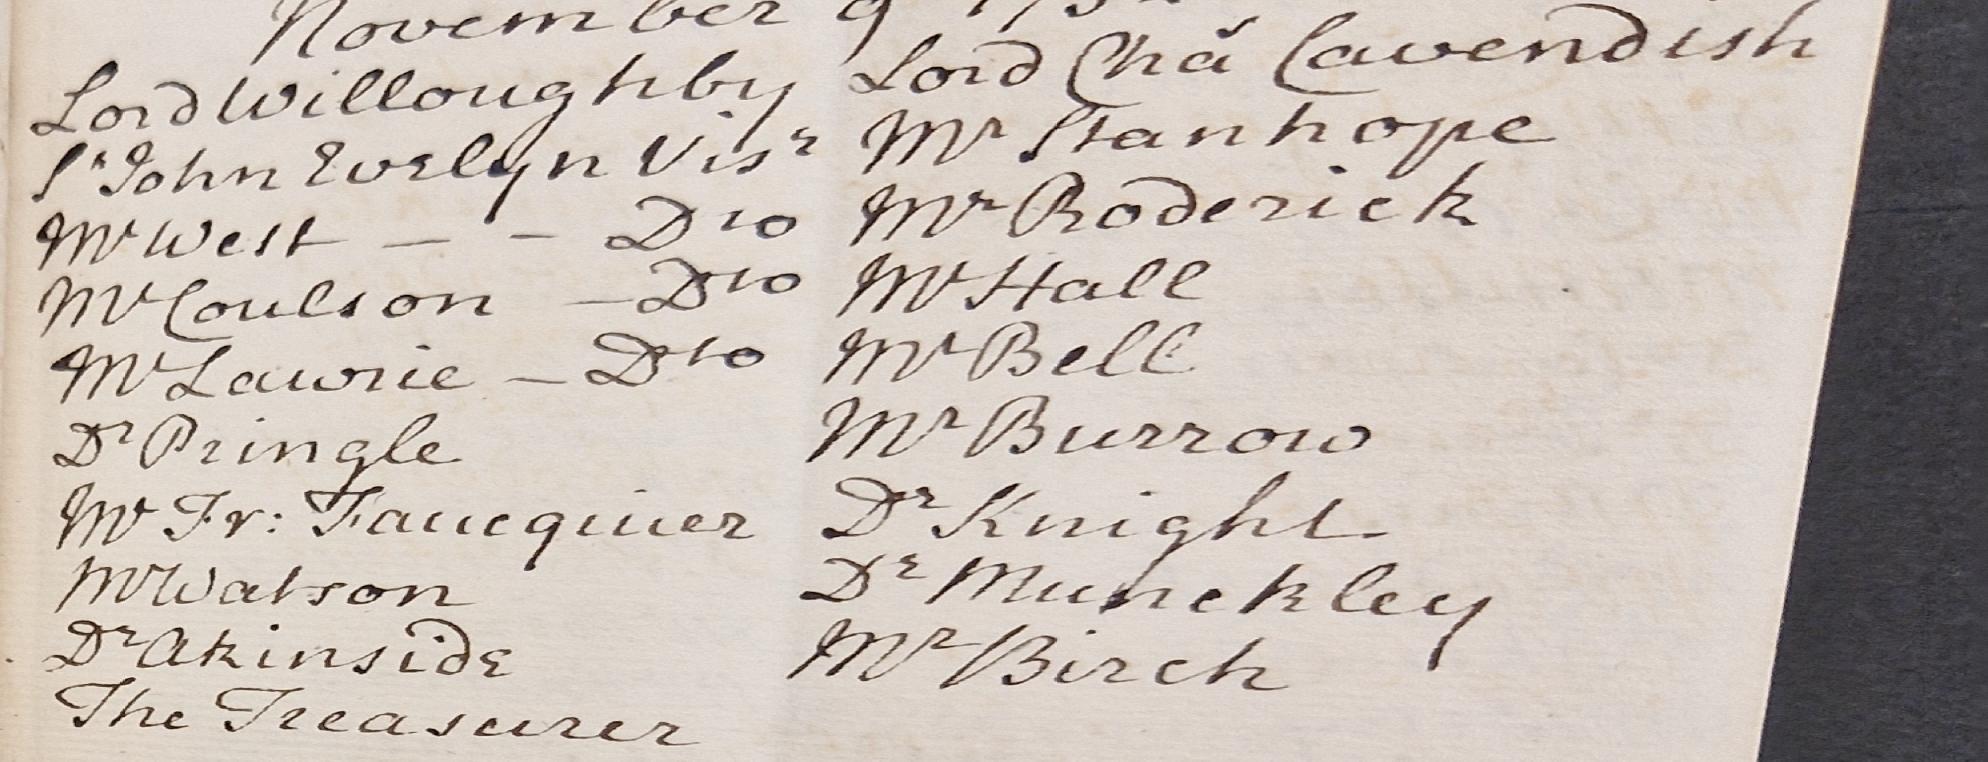 November 9
Lord Willoughby
Sr John Evelyn Visr
Mr West — - Dto
Mr Coulson — Dto
Mr Lawrie — Dto
Dr Pringle
Mr Fr: Faucquier
Mr Watson
Dr Akinside
The Treasurer
Lord Chā Cavendish
Mr Stanhope
Mr Roderick
Mr Hall
Mr Bell
Mr Burrow
Dr Knight
Dr Munckley
Mr Birch